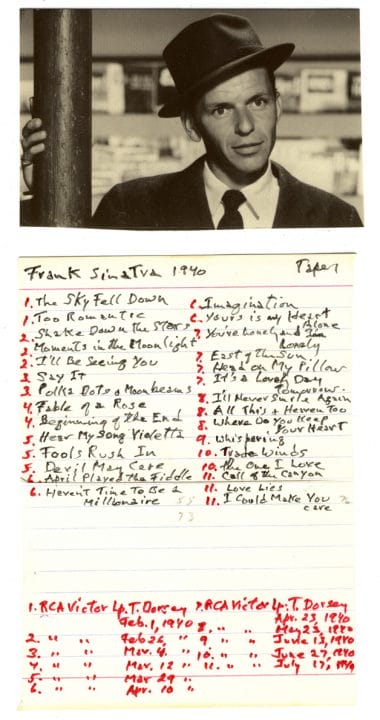 Frank Sinatra 1940
Tape
1. The Sky Fell Down
1. Too Romantic
2. Shake Down the Stars
2. Moments in the Moonlight
2. I'll Be Seeing You
3 Say It
3 Polka Dots & Moonbeams
4. Fable of a Rose
4. Beginning of the End
5. Hear My Song Violetta
5. Fools Rush In
5. Devil May Care
6. April Played the Fiddle
6. Haven't Time To Be a
Millionaire 55
73
6. Imagination
6. Yours is my Heart
Alone
7. You're Lonely and I'm
Lonely
7. East of the Sun.
7. Head on My Pillow
7. It's a Lovely Day
Tomorrow.
8. I'll Never Smile Again
8. All This & Heven Too
8. Where Do You Keep
Your Heart
9. Whispering
10. Trade Winds
10. the One I Love
11. Call of the Canyon
11. Love Lies
11. I Could Make You
care
1. RCA Victor Lp. T. Dorsey
Feb. 1, 1940
2. " " Feb 26, "
3. " " Mar. 4. "
4. " " Mar. 12 "
5. " " Mar 29 "
6. " " Apr. 10 "
7. RCA Victor Lp. T. Dorsey
Apr. 23, 1940
8. " " May 23, 1940
9 " " June 13, 1940
10. " " June 27, 1940
11. " " July 17, 1940